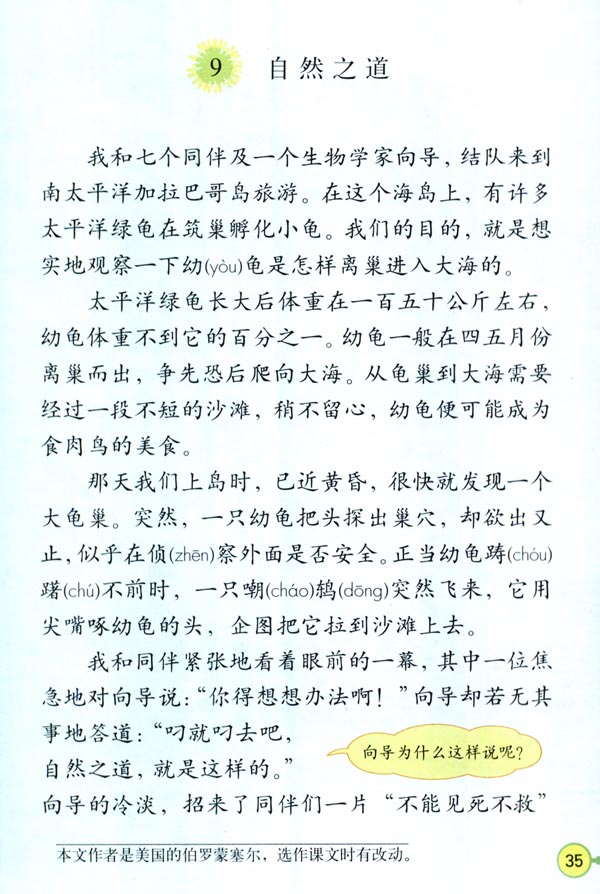 9 自然之道
我和七个同伴及一个生物学家向导，结队来到
南太平洋加拉巴哥岛旅游。在这个海岛上，有许多
太平洋绿龟在筑巢孵化小龟。我们的目的，就是想
实地观察一下幼(yòu)龟是怎样离巢进入大海的。
太平洋绿龟长大后体重在一百五十公斤左右，
幼龟体重不到它的百分之一。幼龟一般在四五月份
离巢而出，争先恐后爬向大海。从龟巢到大海需要
经过一段不短的沙滩，稍不留心，幼龟便可能成为
食肉鸟的美食。
那天我们上岛时，已近黄昏，很快就发现一个
大龟巢。突然，一只幼龟把头探出巢穴，却欲出又
止，似乎在侦(zhēn)察外面是否安全。正当幼龟踌(chóu)
躇(chú)不前时，一只嘲(cháo)鸫(dōng)突然飞来，它用
尖嘴啄幼龟的头，企图把它拉到沙滩上去。
我和同伴紧张地看着眼前的一幕，其中一位焦
急地对向导说：“你得想想办法啊！”向导却若无其
事地答道：“叼就叼去吧，
自然之道，就是这样的。”
向导为什么这样说呢？
向导的冷淡，招来了同伴们一片“不能见死不救”
本文作者是美国的伯罗蒙塞尔，选作课文时有改动。
35